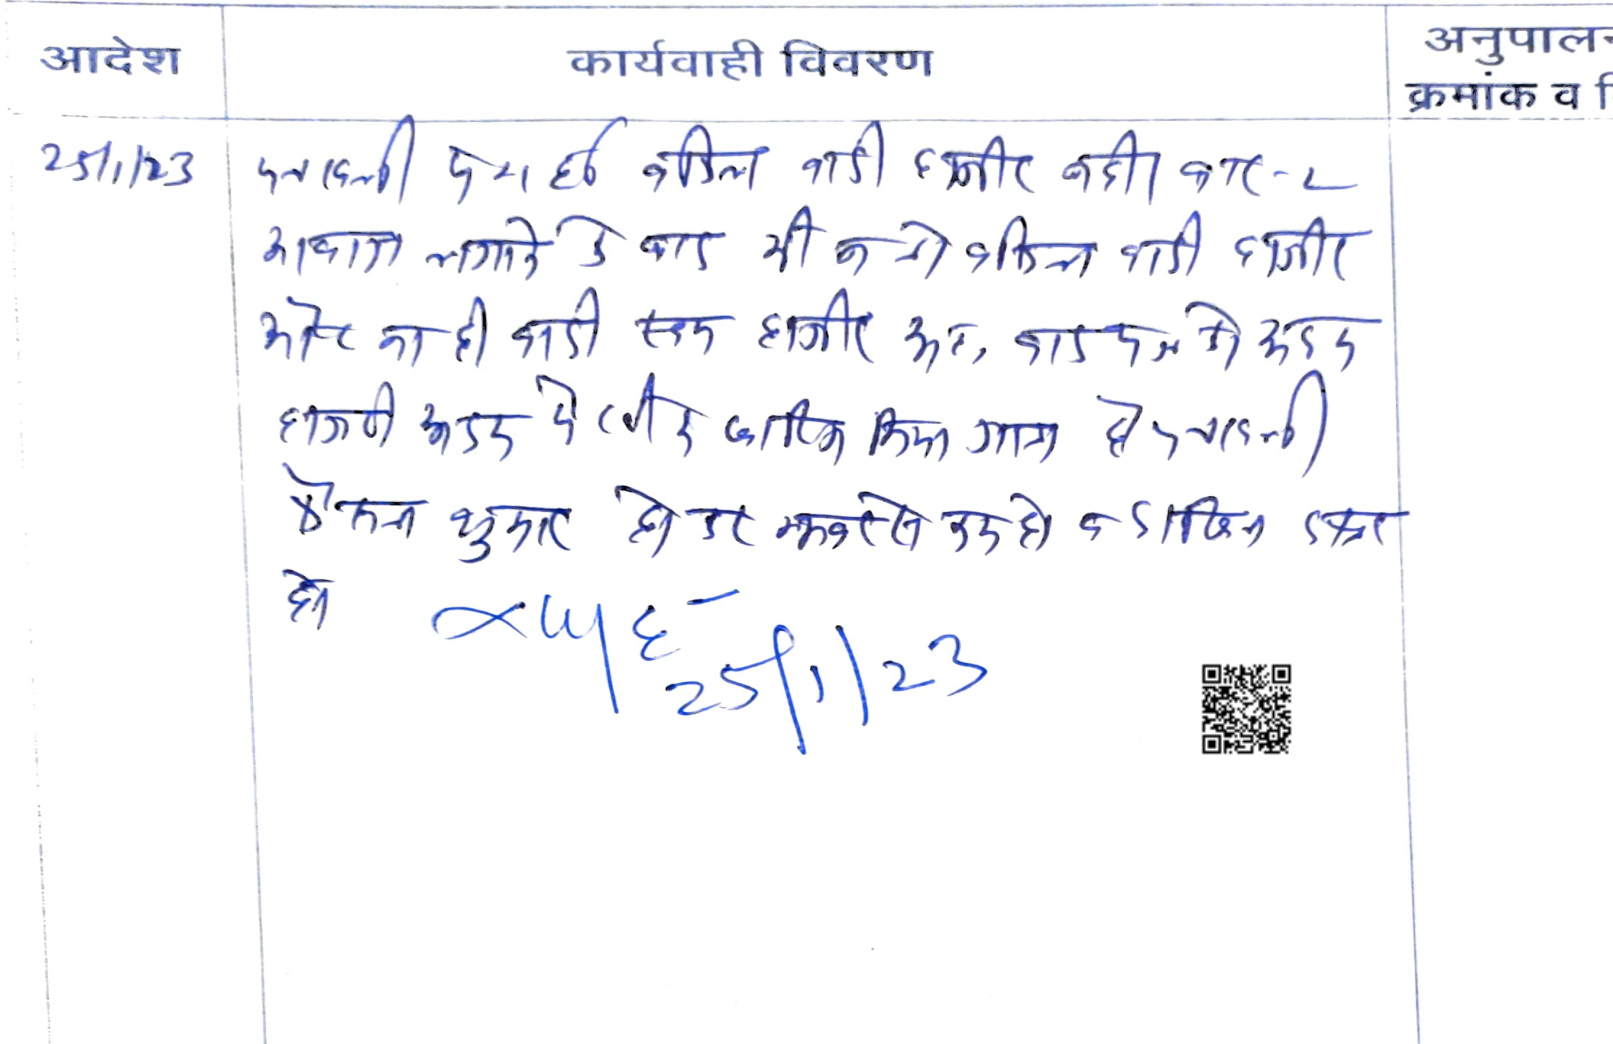 आदेश कार्यवाही विवरण अनुपालन
क्रमांक व
25/1/23 पत्रावली पेश हुई वकिल वादी हाजीर नही बार-२
आवाज लगाने के बाद भी न तो वकिल वादी हाजीर
और ना ही वादी स्वयं हाजीर अतः वाद पत्र को अदम
हाजरी अदम पैरवी में खारिज किया जाता है पत्रावली
फैसल शुमार हो कर नम्बर से कम हो व दाखिल दफ्तर
हो
25/1/23